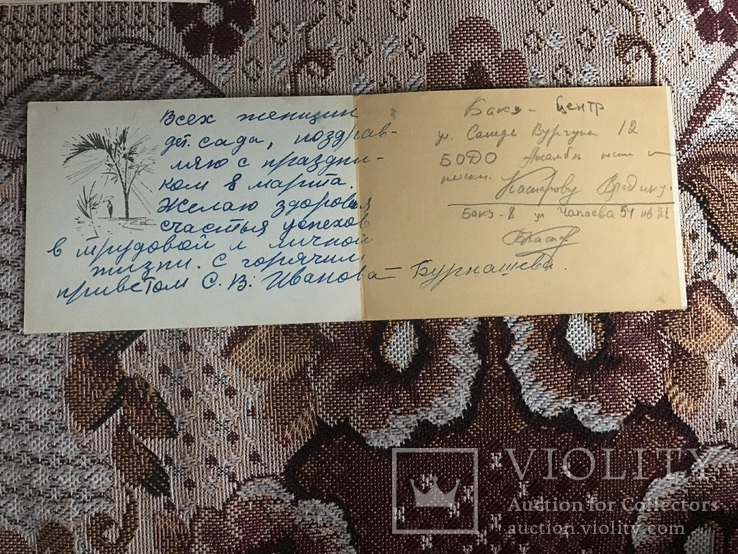 Всех женщин
дет. сада, поздрав-
ляю с праздни-
ком 8 марта.
Желаю здоровья
счастья успехов
в трудовой и личной
жизни. С горячим
приветом С. В. Иванова-Бурнашева.
Баку - Центр
ул. Самеда Вургуна 12
БОДО Ансамбль песни и
пляски.
Каспарову Владими
Баку-8 ул Чапаева 54 кв 21
VIOLITY
Auction for Collectors
auction.violity.com